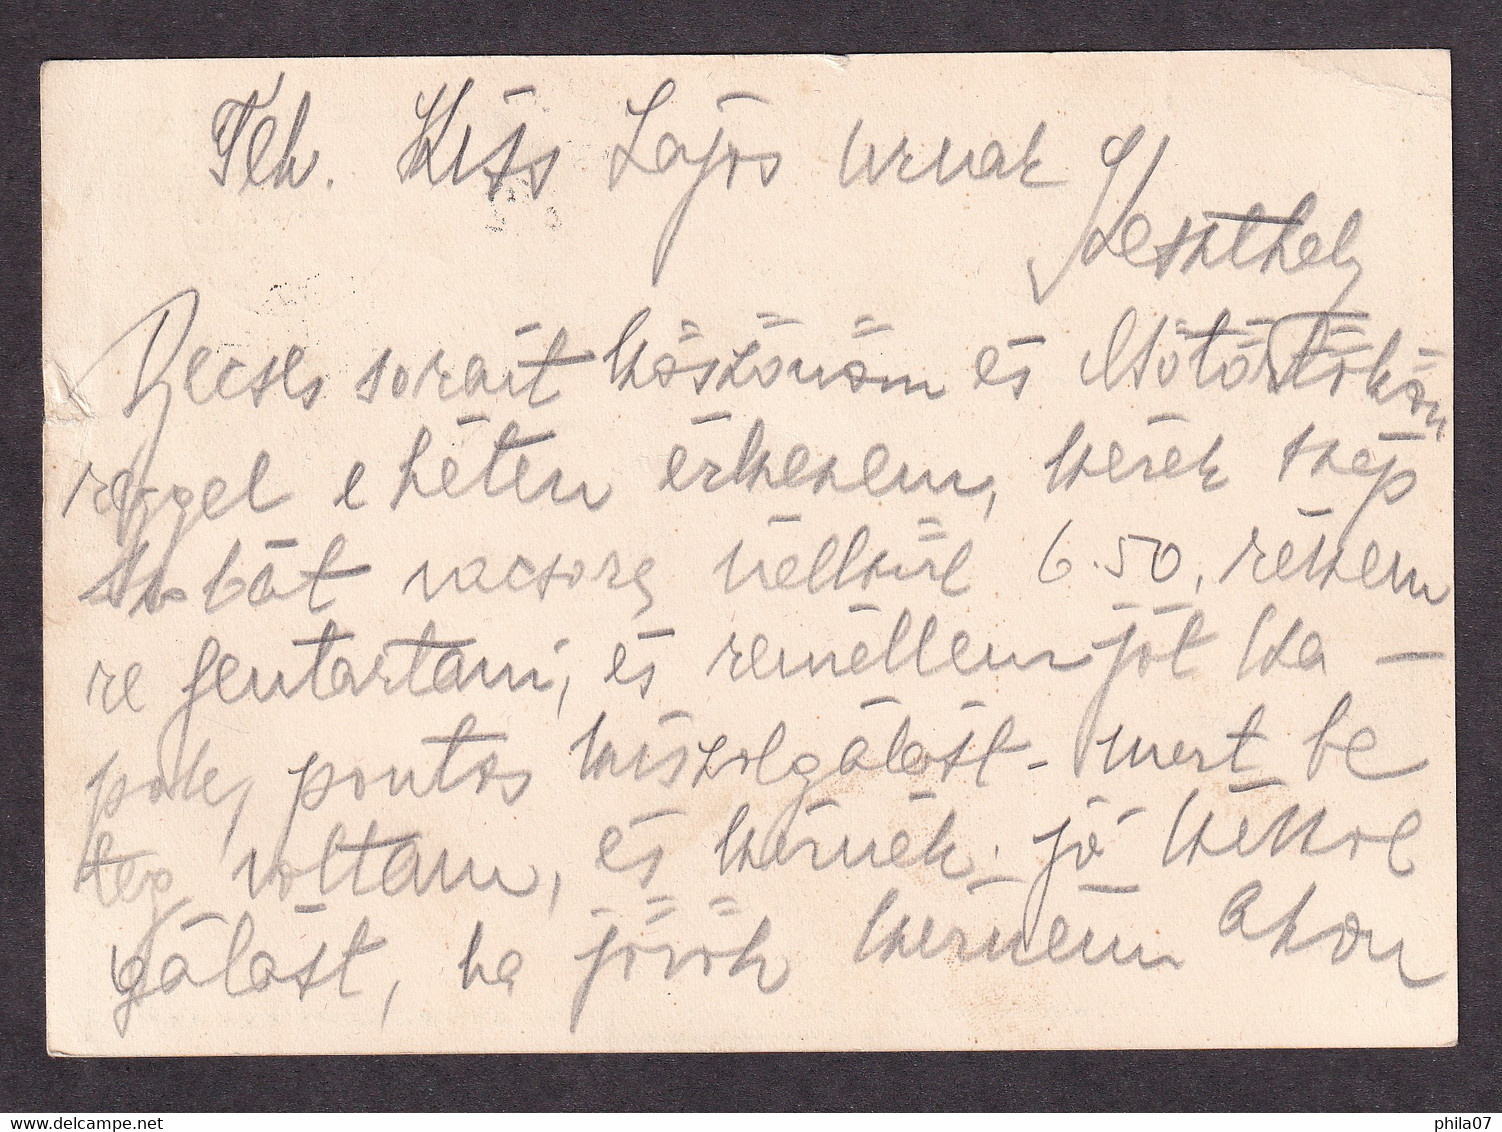 Tek. Kiss Lajos urnak
Keszthely
Becses sorait köszönöm és csötörtökön
reggel e héten érkezem, kérek szép
szobát vacsora nélkül 6.50. részem
re fentartani, és remélem jót ka-
pok, pontos kiszolgálást - mert be
teg voltam, és kérnék jó kiszol
gálást, ha jövök kérném akor
phila07